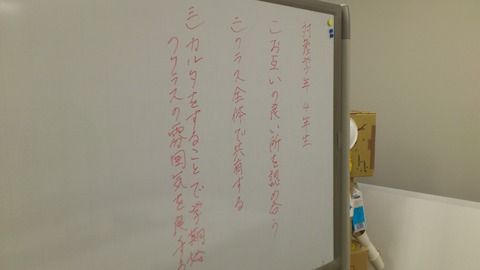 対象学年 4年生
一)お互いの良い所を認め合う
二)クラス全体で共有する
三)カルタをすることで学期始
のクラスの雰囲気を良くする